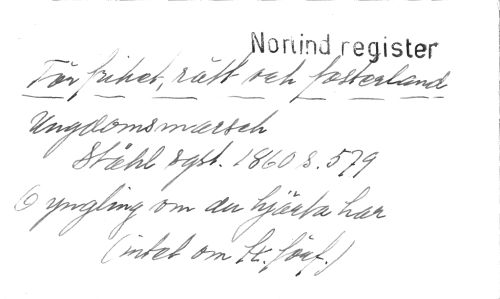 Norlind register
För frihet, rätt och fosterland
Ungdomsmarsch
Ståhl sgst. 1860 s. 579
O yngling om du hjärta har
(intet om tk. förf.)